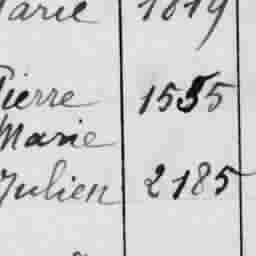 Marie 1819
Pierre 1555
Marie
Julien 2185